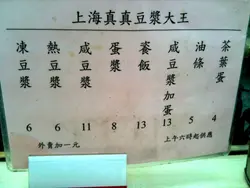 上海真真豆漿大王
凍豆漿
熱豆漿
咸豆漿
蛋漿
餈飯
咸豆漿加蛋
油條
茶葉蛋
6 6 11 8 13 13 5 4
外賣加一元
上午六時起供應